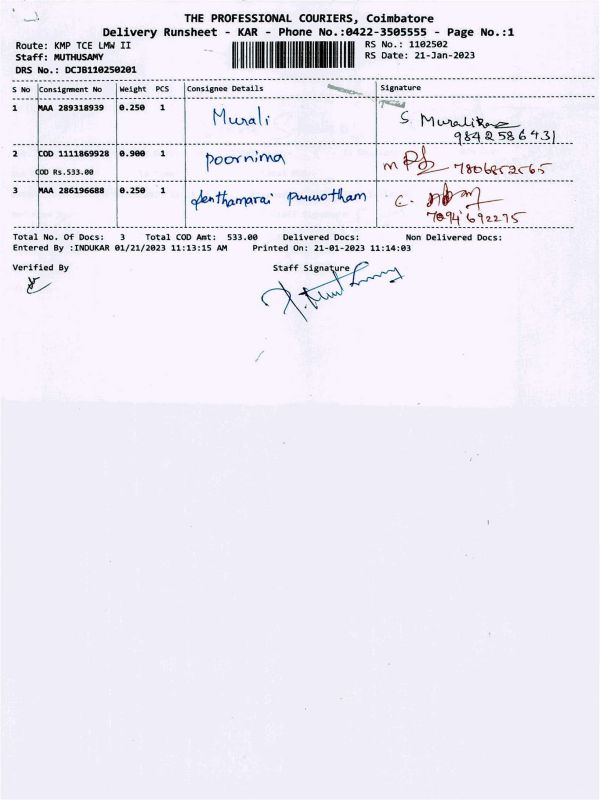 THE PROFESSIONAL COURIERS, Coimbatore
Delivery Runsheet - KAR - Phone No.:0422-3505555 - Page No.:1
Route: KMP TCE LMW II
RS No.: 1102502
Staff: MUTHUSAMY
RS Date: 21-Jan-2023
DRS No.: DCJB110250201
S No Consignment No Weight PCS Consignee Details Signature
1 MAA 289318939 0.250 1 Murali S.
9842586431
2 COD 1111869928 0.900 1 poornima
COD Rs.533.00
7806852565
3 MAA 286196688 0.250 1 Senthamarai purusotham C.
7094692275
Total No. Of Docs: 3 Total COD Amt: 533.00 Delivered Docs: Non Delivered Docs:
Entered By :INDUKAR 01/21/2023 11:13:15 AM Printed On: 21-01-2023 11:14:03
Verified By Staff Signature